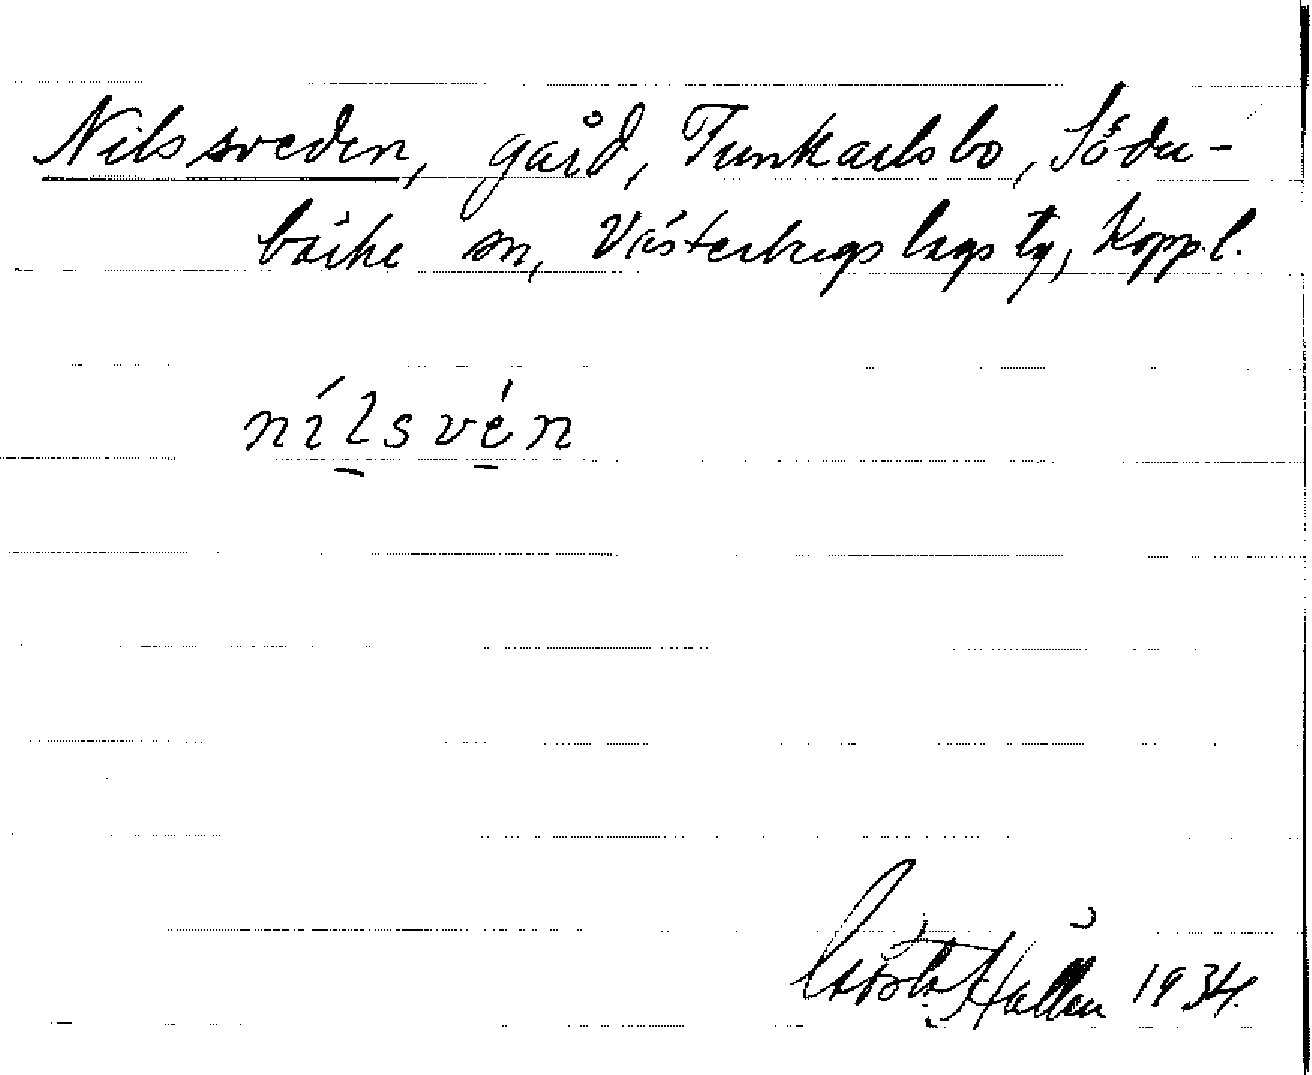 Nilssveden, gård, Tunkarlsbo, Söder-
bärke sn, Västerbergslags tg, Koppl.
nílsvén
Hallén 1934.